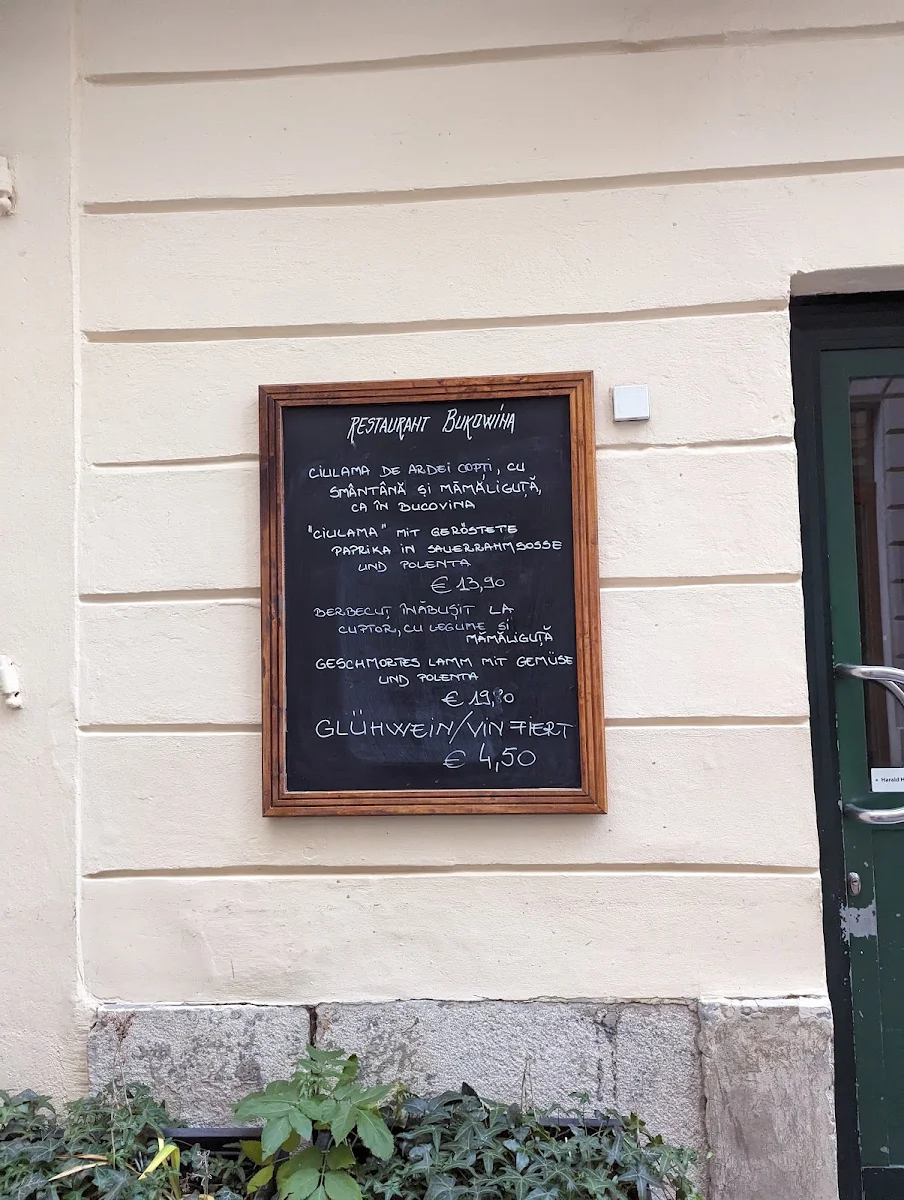 RESTAURANT BUKOWINA
CIULAMA DE ARDEI COPȚI, CU
SMÂNTÂNĂ ȘI MĂMĂLIGUȚĂ,
CA ÎN BUCOVINA
"CIULAMA" MIT GERÖSTETE
PAPRIKA IN SAUERRAHMSOSSE
UND POLENTA
€ 13,90
BERBECUȚ ÎNĂBUȘIT LA
CUPTOR, CU LEGUME ȘI
MĂMĂLIGUȚĂ
GESCHMORTES LAMM MIT GEMÜSE
UND POLENTA
€ 19,80
GLÜHWEIN/VIN FIERT
€ 4,50
Harald